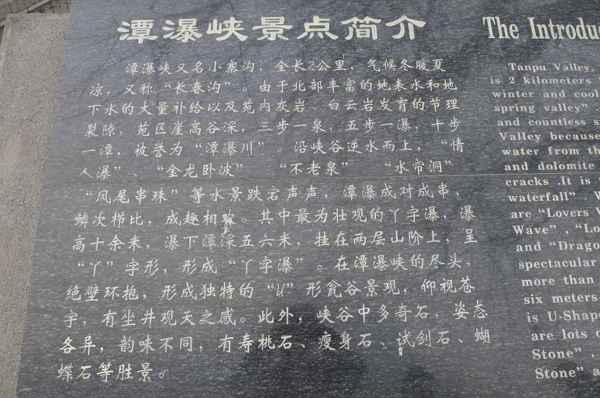 潭瀑峡景点简介
潭瀑峡又名小寨沟，全长2公里，气候冬暖夏
凉，又称“长春沟”。由于北部丰富的地表水和地
下水的大量补给以及苑内灰岩、白云岩发育的节理
裂隙，苑区崖高谷深，三步一泉，五步一瀑，十步
一潭，被誉为“潭瀑川” 沿峡谷逆水而上，“情
人瀑”、“金龙卧波” “不老泉” “水帘洞”
“凤尾串珠”等水景跌宕声声，潭瀑成对成串，
鳞次栉比，成趣相。其中最为壮观的丫字瀑，瀑
高十余米，瀑下潭深五六米，挂在两层山阶上，呈
“丫”字形，形成“丫字瀑”。在潭瀑峡的尽头，
绝壁环抱，形成独特的“U”形瓮谷景观，仰视苍
宇，有坐井观天之感。此外，峡谷中多奇石，姿态
各异，韵味不同，有寿桃石、瘦身石、试剑石、蝴
蝶石等胜景。
The Introduc
Tanpu Valley,
is 2 kilometers
winter and cool
spring valley"
and countless s
Valley because
water from th
and dolomite
cracks .It is
waterfall" W
are "Lovers W
Wave" , "Lo
and "Drago
spectacular
more than
six meters
is U-Shap
are lots o
Stone" ,
Stone" a